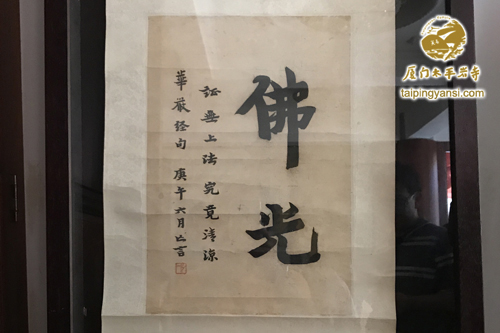 佛光
証無上法究竟清涼
華嚴經句 庚午六月亡言
厦门太平岩寺
taipingyansi.com